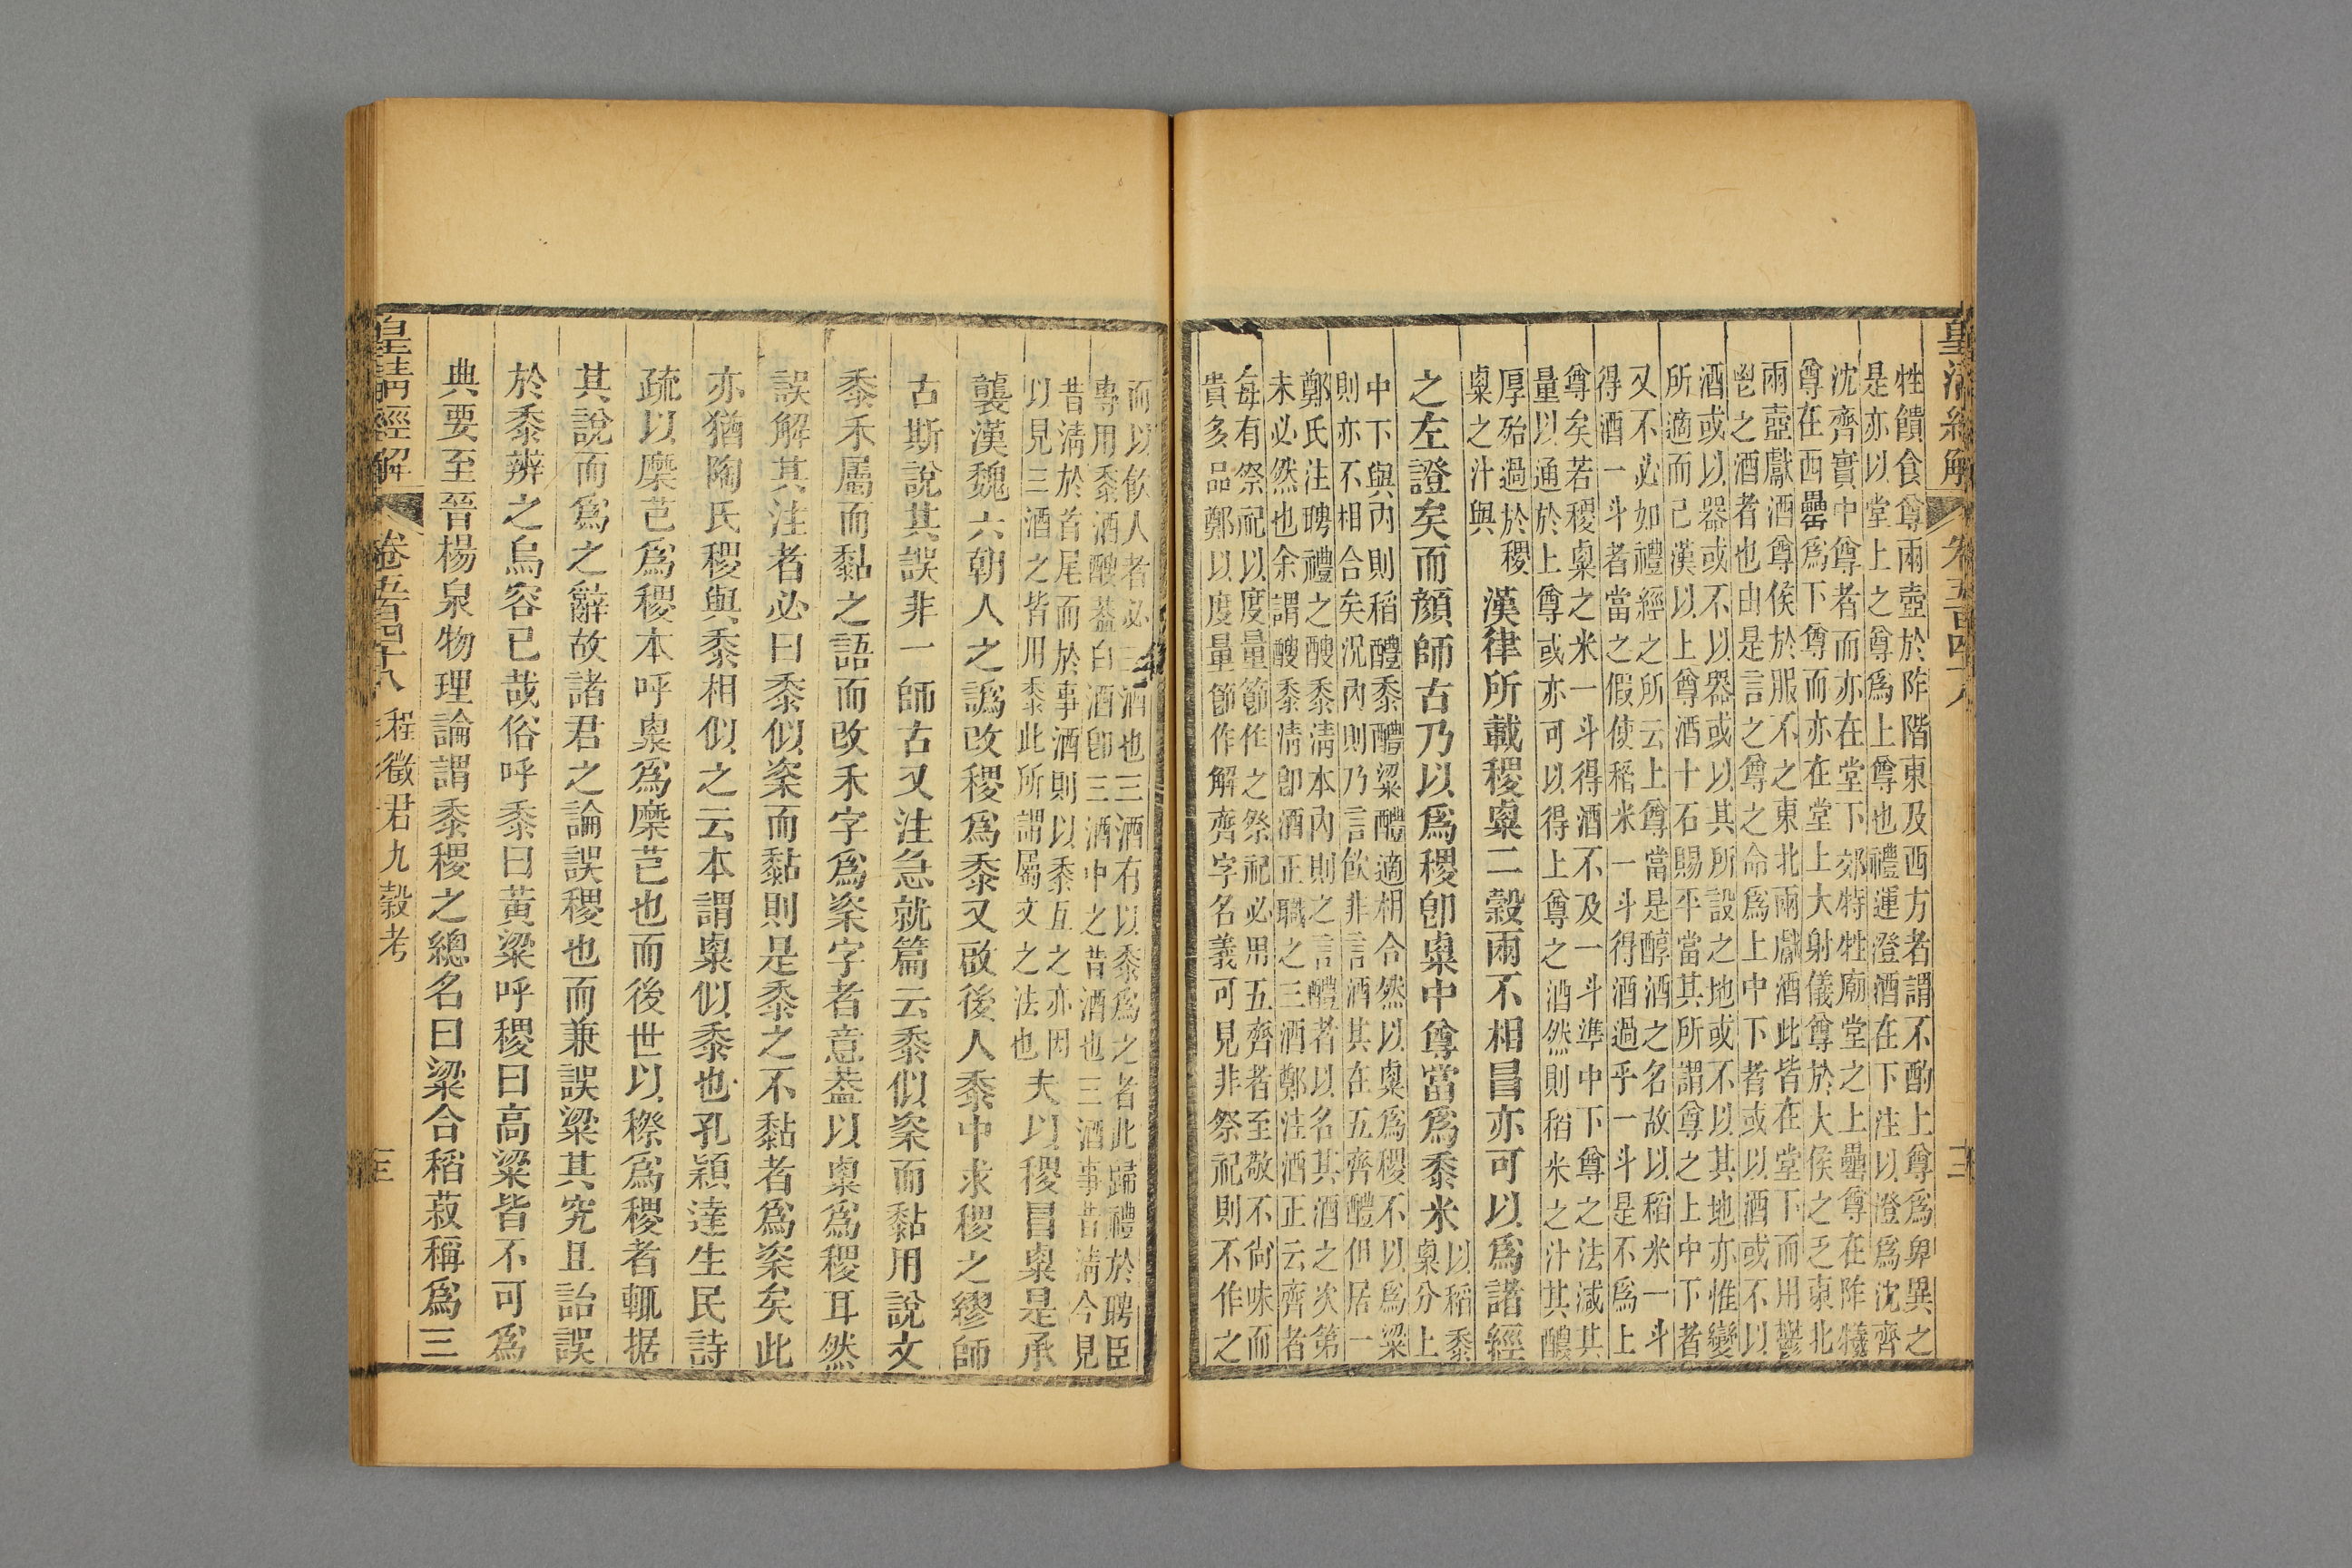 皇清經解
卷五百四十八
牲饋食尊兩壺於阼階東及西方者謂不酌上尊爲卑異之
是亦以堂上之尊爲上尊也禮運澄酒在下注以澄爲沈齊
沈齊實中尊者而亦在堂下郊特牲廟堂之上罍尊在阼犧
尊在西罍爲下尊而亦在堂上大射儀尊於大侯之乏東北
兩壺獻酒尊侯於服不之東北兩獻酒此皆在堂下而用鬱
鬯之酒者也由是言之尊之命爲上中下者或以酒或不以
酒或以器或不以器或以其所設之地或不以其地亦惟變
所適而已漢以上尊酒十石賜平當其所謂尊之上中下者
又不必如禮經之所云上尊當是醇酒之名故以稻米一斗
得酒一斗者當之假使稻米一斗得酒過乎一斗是不爲上
尊矣若稷粟之米一斗得酒不及一斗準中下尊之法減其
量以通於上尊或亦可以得上尊之酒然則稻米之汁其醲
厚殆過於稷
粟之汁與
漢律所載稷粟二穀兩不相冒亦可以爲諸經
之左證矣而顏師古乃以爲稷卽粟中尊當爲黍米
以稻黍
粟分上
中下與內則稻醴黍醴粱醴適相合然以粟爲稷不以爲粱
則亦不相合矣況內則乃言飮非言酒其在五齊醴但居一
鄭氏注聘禮之醙黍淸本內則之言醴者以名其酒之次第
未必然也余謂醙黍淸卽酒正職之三酒鄭注酒正云齊者
每有祭祀以度量節作之祭祀必用五齊者至敬不尙味而
貴多品鄭以度量節作解齊字名義可見非祭祀則不作之
而以飮人者必三酒也三酒有以黍爲之者此歸禮於聘臣
專用黍酒醙葢白酒卽三酒中之昔酒也三酒事昔淸今見
昔淸於首尾而於事酒則以黍互之亦因
以見三酒之皆用黍此所謂屬文之法也
夫以稷冒粟是承
襲漢魏六朝人之譌改稷爲黍又啟後人黍中求稷之繆師
古斯說其誤非一師古又注急就篇云黍似穄而黏用說文
黍禾屬而黏之語而改禾字爲穄字者意葢以粟爲稷耳然
誤解其注者必曰黍似穄而黏則是黍之不黏者爲穄矣此
亦猶陶氏稷與黍相似之云本謂粟似黍也孔穎達生民詩
疏以穈芑爲稷本呼粟爲穈芑也而後世以穄爲稷者輒据
其說而爲之辭故諸君之論誤稷也而兼誤粱其究且詒誤
於黍辨之烏容已哉俗呼黍曰黃粱呼稷曰高粱皆不可爲
典要至晉楊泉物理論謂黍稷之總名曰粱合稻菽稱爲三
皇淸經解
卷五百四十八
程徵君九穀考
三